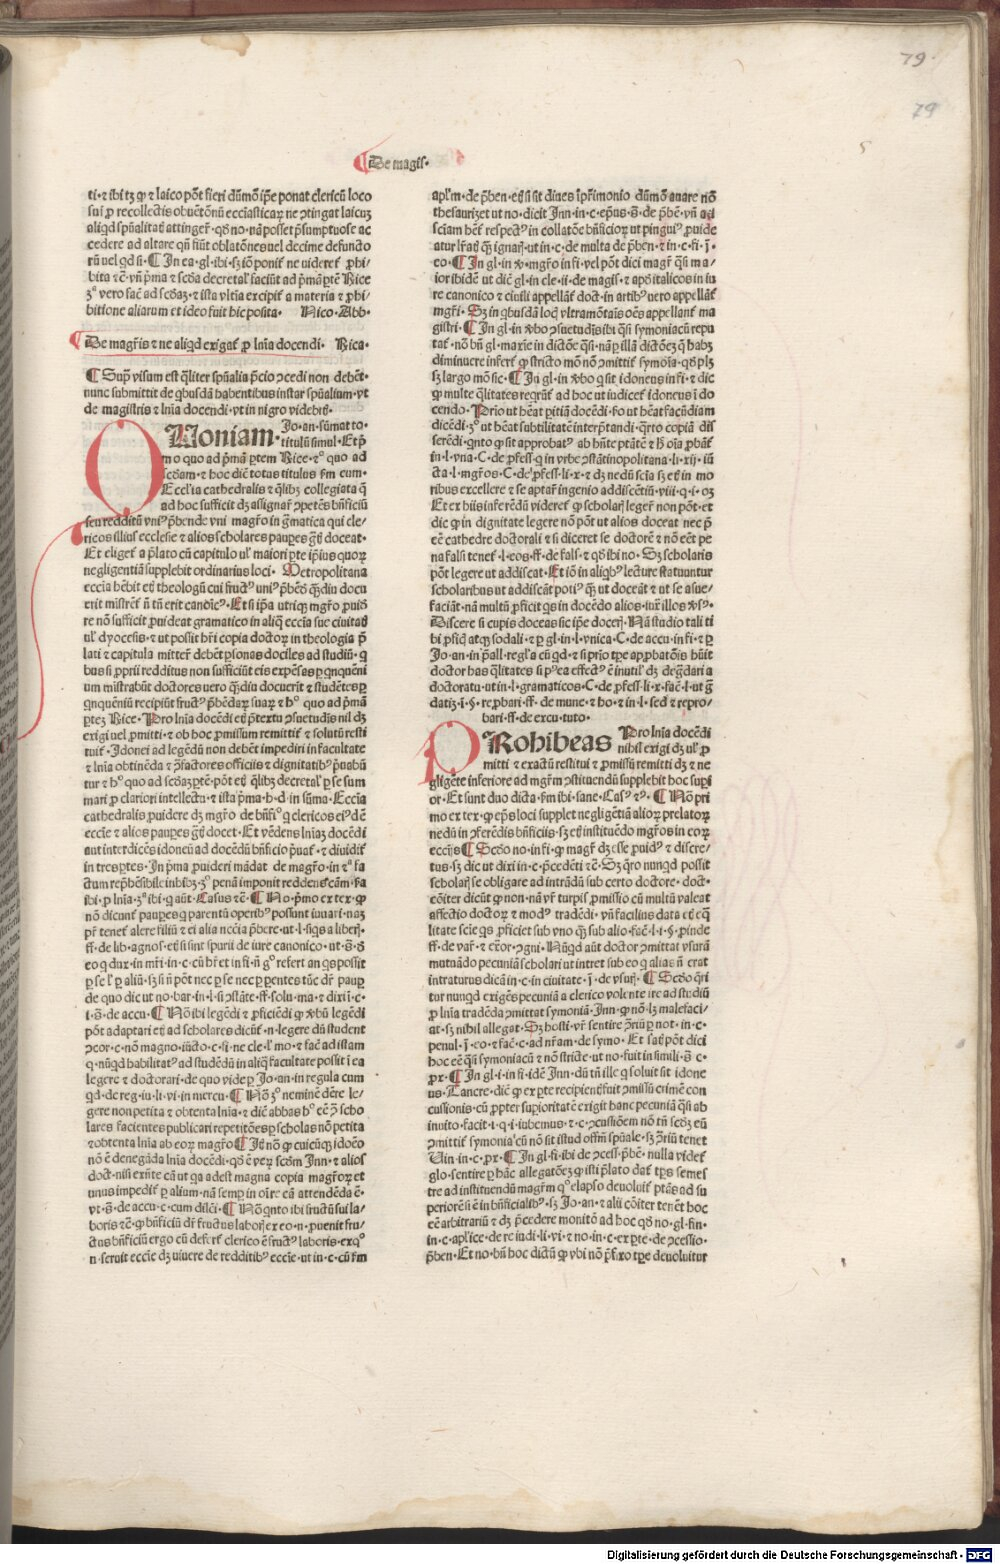 79.
79
De magis.
ti. ⁊ ibi tʒ ꝙ ⁊ laico põt fieri dũmõ ip̃e ponat clericũ loco
sui ꝓ recollectis obuẽtõnũ eccl̃asticaꝝ ne ↄtingat laicuʒ
aliqd spũalitatꝭ attingerꝭ. qð no. nã posset p̃sumptuose ac
cedere ad altare qñ fiũt oblatões uel decime defuncto
rũ uel qd ũ. ¶ In ea. gl. ibi. sʒ iõ ponitꝭ ne videretꝭ ꝓhi/
bita ⁊c̃. vñ p̃ma ⁊ sc̃da decretal̃ faciũt ad p̃mã ꝑtẽ Rice
ʒº vero fac̃ ad sc̃dãʒ. ⁊ ista vl̃tia excipitꝭ a materia ⁊ ꝓhi/
bitione aliarum et ideo fuit hic posita. Nico. Abb.
De magr̃is ⁊ ne aliqd exigatꝭ ꝓ lñia docendi. Rica.
¶ Supꝰ visum est qliter spũalia p̃cio ↄcedi non debẽt.
nunc submittit de qbusdã habentibus instar spũalium. vt
de magistris ⁊ lñia docendi. vt in nigro videbr̃.
QVoniam. Jo. an. sũmat to.
titulũ simul. Et p̃
mo quo ad p̃mã ꝑtem Rice. ⁊º quo ad
sc̃dam. ⁊ hoc diẽt totus titulus s̃m cum.
Eccl̃ia cathedralis ⁊ qlibʒ collegiata q̃
ad hoc sufficit dʒ assignarꝭ ↄpetẽs bñficiũ
seu redditũ vniꝰ p̃bende vni magr̃o in g̃matica qui cle/
ricos illius ecclesie ⁊ alios scholares pauꝑes g̃tꝭ doceat.
Et eligetꝭ a p̃lato cũ capitulo ul̃ maiori ꝑte ip̃ius quoꝝ
negligentiã supplebit ordinarius loci. Metropolitana
eccl̃ia hẽbit etꝭ theologũ cui fructꝰ uniꝰ p̃bẽõ q̃diu docu
erit mĩstrẽtꝭ ñ tñ erit canõicꝰ. Et si ip̃a utriqꝫ magr̃o ꝓuidẽ
re nõ sufficit ꝓuideat gramatico in aliq̃ eccl̃ia sue ciuitatꝭ
ul̃ dyocesis. ⁊ ut possit hr̃i copia doctoꝝ in theologia p̃
lati ⁊ capitula mitterꝭ debẽt ꝑsonas dociles ad studiũ. q
bus si ꝓprii redditus non sufficiũt eis expẽsas ꝑ qnquẽni
um mĩstrabũt doctores uero q̃diu docuerĩt ⁊ studẽtes ꝑ
qnquẽniũ recipiũt fructꝰ p̃bẽdaꝝ suaꝝ ⁊ hº quo ad p̃mã
ꝑteʒ Rice. Pro lñia docẽdi etꝭ p̃textu ↄsuetudĩs nil dʒ
exigi uel ꝓmitti. ⁊ ob hoc ꝓmissum remittitꝭ ⁊ solutũ resti
tuitꝭ. Idonei ad legẽdũ non debẽt impediri in facultate
⁊ lñia obtinẽda ⁊ ʒ̃factores officiis ⁊ dignitatibꝰ p̃uabũ
tur ⁊ hº quo ad sc̃dãʒ ꝑtẽ. põt etꝭ q̃libʒ decretal̃ ꝑ se sum
mari ꝓ clariori intellectu. ⁊ ista p̃ma. h. d. in sũma. Eccl̃ia
cathedralis ꝓuidere dʒ magr̃o de bñfiº q clericos eiꝰdẽ
eccl̃ie ⁊ alios pauꝑes g̃tꝭ docet. Et vẽdens lñiaʒ docẽdi
aut interdicẽs idoneũ ad docẽdũ bñficio p̃uatꝭ. ⁊ diuiditꝭ
in tres ꝑtes. In p̃ma ꝓuideri mãdat de magr̃o. in ⁊ª fa
ctum rep̃hẽsibile inhibʒ. ʒº penã imponit reddens cãm. sa
ibi. ꝓ lñia. ʒª ibi. q aũt. Casus ⁊c̃. ¶ No. p̃mo ex tex. ꝙ
nõ dicunt̃ pauꝑes q parentũ operibꝰ possunt iuuari. naʒ
pr̃ tenet̃ alere filiũ ⁊ ei alia necc̃ia p̃bere. ut. l. siqs a liberꝭ.
ff. de lib. agnos. etꝭ si sint spurii de iure canonico. ut. s̃. s̃
eo q dux. in mr̃i. in. c. cũ hr̃et in fi. ñ gº refert an qs possit
ꝑ se ul̃ ꝑ aliũ. sʒ si ñ põt nec ꝑ se nec ꝑ ꝑentes tũc dr̃ pauꝑ
de quo dic ut no. bar. in. l. si ↄstãte. ff. solu. ma. ⁊ dixi. c.
i. s̃. de accu. ¶ Nõ ibi legẽdi ⁊ ꝓficiẽdi ꝙ ṽbũ legẽdi
põt adaptari etꝭ ad scholares dicũt̃. n. legere dũ student
ↄcor. c. nõ magno. iũcto. c. si. ne cle. l̃ mo. ⁊ fac̃ ad istam
q. nũqd habilitatꝰ ad studẽdũ in aliq̃ facultate possit ĩ ea
legere ⁊ doctorari. de quo vide ꝑ Jo. an. in regula cum
qd. de reg. iu. li. vi. in mercu. ¶ Nõ ʒº neminẽ dẽre le/
gere non petita ⁊ obtenta lñia. ⁊ diẽ abbas hº eẽ ʒ̃ scho
lares facientes publicari repetitõẽs ꝑ scholas nõ petita
⁊ obtenta lñia ab eoꝝ magr̃o ¶ Itꝭ nõ ꝙ cuicũqꝫ idoẽo
nõ ẽ denegãda lñia docẽdi. qð ẽ veꝝ sc̃dm Inn. ⁊ alios
doct. nisi exñte cã ut qa adest magna copia magr̃oꝝ et
unus impeditꝭ ꝑ alium. nã semꝑ in oĩre cã attendẽda ẽ.
vt. s̃. de accu. c. cum dilc̃i. ¶ Nõ qnto ibi fructũ sui la/
boris ⁊c̃. ꝙ bñficiũ dr̃ fructus laborꝭ ex eo. n. ꝓuenit fru/
ctus bñficiũ ergo cũ defertꝭ clerico ẽ fructꝰ laboris. exqº
n. seruit eccl̃ie dʒ viuere de redditibꝰ eccl̃ie. ut in. c. cũ s̃m
apl̃m. de p̃ben. etꝭ si sit diues ĩ pr̃imonio dũmõ auare nõ
thesaurizet ut no. dicit Inn. in. c. ep̃us. s̃. de p̃bẽ. vñ ad
sciam hẽt̃ respectꝰ in collatõe bñficioꝝ ut pinguiꝰ ꝓuide
atur lr̃atꝭ q̃ʒ ignarꝭ. ut in. c. de multa. de p̃bẽn. ⁊ in. c. fi. ĩ.
eo. ¶ In gl. in ṽ. mgr̃o in fi. vel põt dici magr̃ qsi ma/
ior ibidẽ ut diẽ gl. in cle. ii. de magis. ⁊ apd̃ italicos in iu
re canonico ⁊ ciuili appellãtꝭ doct. in artibꝰ uero appellãtꝭ
mgr̃i. Sʒ in qbusdã locꝭ vltramõtaĩs oẽs appellant̃ ma
gistri. ¶ In gl. in ṽbo ↄsuetudĩs ibi qsi symoniacũ repu
tatꝭ. nõ bñ gl. maxĩe in dictõe qsi. nã ꝑ illã dictõeʒ q habʒ
diminuere infert̃ ꝙ stricto mõ nõ ↄmittit̃ symoĩa. qð plʒ
sʒ largo mõ sic. ¶ In gl. in ṽbo q sit idoneus in fi. ⁊ dic
ꝙ multe qlitates reqrũtꝭ ad hoc ut iudicet̃ idoneus ĩ do
cendo. Prĩo ut hẽat ꝑitiã docẽdi. scdo ut hẽat facũdiam
dicẽdi. ʒº ut hẽat subtilitatẽ interp̃tandi. q̃rto copiã dis
serẽdi. qnto ꝙ sit approbatꝰ ab hñte p̃tãtẽ ⁊ h̃ oĩa ꝓbãtꝭ
in. l. vna. C. de ꝓfess. q in vrbe ↄstãtinopolitana. li. xij. iũ
cta. l. mgr̃os. C. de ꝓfess. li. x. ⁊ dʒ nedũ scĩa sʒ etꝭ in mo
ribus excellere ⁊ se aptarꝭ ingenio addiscẽtiũ. viii. q. i. oʒ
Et ex hiis inferẽdũ videret̃ ꝙ scholarꝭ legerꝭ non põt. et
dic ꝙ in dignitate legere nõ põt ut alios doceat nec p̃
eẽ cathedre doctorali ⁊ si diceret se doctorẽ ⁊ nõ eẽt pe
na falsi tenet̃. l. eos. ff. de fals. ⁊ qð ibi no. Sʒ scholaris
põt legere ut addiscat. Et iõ in aliqbꝰ lecture statuuntur
scholaribus ut addiscãt potiꝰ q̃ʒ ut doceãt ⁊ ut se asue/
faciãt. nã multũ ꝓficit qs in docẽdo alios. iux̃ illos ṽsꝰ.
Discere si cupis doceas sic ip̃e docerꝭ. Nã studio tali ti
bi ꝓficꝭ atqꝫ sodali. ⁊ ꝑ gl. in. l. vnica. C. de accu. in fi. ⁊ ꝑ
Jo. an. in p̃all. regl̃a cũ qd. ⁊ si prĩo tꝑe approbatõis hũit
doctor has qlitates si pꝰea effectꝰ ẽ inutil̃ dʒ deg̃dari a
doctoratu. ut in. l. gramaticos. C. de ꝓfess. li. x. fac̃. l. ut g̃
datiʒ. i. §. reꝓbari. ff. de mune. ⁊ ho. ⁊ in. l. sed ⁊ repro/
bari. ff. de excu. tuto.
PRohibeas Pro lñia docẽdi
nihil exigi dʒ ul̃ ꝓ
mitti ⁊ exactũ restitui ⁊ ꝓmissũ remitti dʒ ⁊ ne
gligẽte inferiore ad mgr̃m ↄstituendũ supplebit hoc suꝑi
or. Et sunt duo dicta. s̃m ibi. sane. Casꝰ ⁊ꝰ. ¶ Nõ pri
mo ex tex. ꝙ ep̃s loci supplet negligẽtiã alioꝝ prelatoꝝ
nedũ in ↄferẽdis bñficiis. sʒ etꝭ instituẽdo mgr̃os in eoꝝ
eccĩjs ¶ Scdõ no. in fi. ꝙ magr̃ dʒ esse ꝓuidꝰ ⁊ discre/
tus. sʒ dic ut dixi in. c. p̃cedẽti ⁊c̃. Sʒ q̃ro nunqd possit
scholarꝭ se obligare ad intrãdũ sub certo doctore. doct.
cõiter dicũt ꝙ non. nã vr̃ turpis ꝓmissio cũ multũ valeat
affectio doctoꝝ ⁊ modꝰ tradẽdi. vñ facilius data eq̃
litate scĩe qs ꝓficiet sub vno q̃ʒ sub alio. fac̃. l. i. §. ꝓinde
ff. de varꝭ. ⁊ ex̃or. ↄgni. Nũqd aũt doctor ↄmittat vsurã
mutuãdo pecuniã scholari ut intret sub eo q alias ñ erat
intraturus dicã in. c. in ciuitate. ĩ. de vsurꝭ. ¶ Scdõ q̃ri
tur nunqd exigẽs pecuniã a clerico volente ire ad studiũ
ꝓ lñia tradẽda ↄmittat symoniã. Inn. ꝙ nõ. lʒ malefaci/
at. sʒ nihil allegat. Sʒ hosti. vr̃ sentire ʒ̃riũ ꝑ not. in. c.
penul. ĩ. eo. ⁊ fac̃. c. ad nr̃am. de symo. Et satꝭ põt dici
hoc eẽ qsi symoniacũ ⁊ nõ stricte. ut no. fuit in simili. s̃. c.
ꝓx. ¶ In gl. i. in fi. idẽ Inn. dũ tñ ille q soluit sit idone
us. Tancre. diẽ ꝙ ex ꝑte recipientꝭ fuit ↄmissũ crimẽ con
cussionis. cũ ꝓpter suꝑioritatẽ exigit hanc pecuniã qsi ab
inuito. facit. i. q. i. iubemus. ⁊. c. ↄcussiõem nõ tñ sc̃dʒ eũ
ↄmittit̃ symonia cũ nõ sit istud offm̃ spũale. sʒ ʒ̃riũ tenet
Vin. in. c. ꝓx. ¶ In gl. fi. ibi de ↄcess. p̃bẽ. nulla videtꝭ
glo. sentire ꝑ hãc allegatõeʒ ꝙ isti p̃lato datꝭ tp̃s semes
tre ad instituendũ magr̃m qº elapso deuoluitꝭ ptãs ad su
periorẽ si ẽ in bñficialibꝰ. sʒ Jo. an. ⁊ alii cõiter tenẽt hoc
eẽ arbitrariũ ⁊ dʒ p̃cedere monitõ ad hoc qð no. gl. fin.
in. c. aplice. de re iudi. li. vi. ⁊ no. in. c. ex ꝑte. de ↄcessio.
p̃ben. Et no. bñ hoc dictũ ꝙ vbi nõ p̃fixo tꝑe deuoluitur
Digitalisierung gefördert durch die Deutsche Forschungsgemeinschaft - DFG